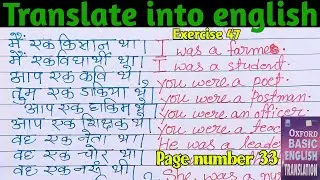 Translate into english
Exercise 47
मैं एक किसान था। I was a farmer.
मैं एक विद्यार्थी था। I was a student.
आप एक कवि थे। you were a poet.
तुम एक डाकिया थे। you were a postman.
आप एक हाकिम थे। you were an officer.
आप एक शिक्षक थे। you were a tea
वह एक नेता था। He was a leade
वह एक चोर था।
वह एक नर्स थी। She was a nu
Page number 33
OXFORD
BASIC
ENGLISH
TRANSLATION